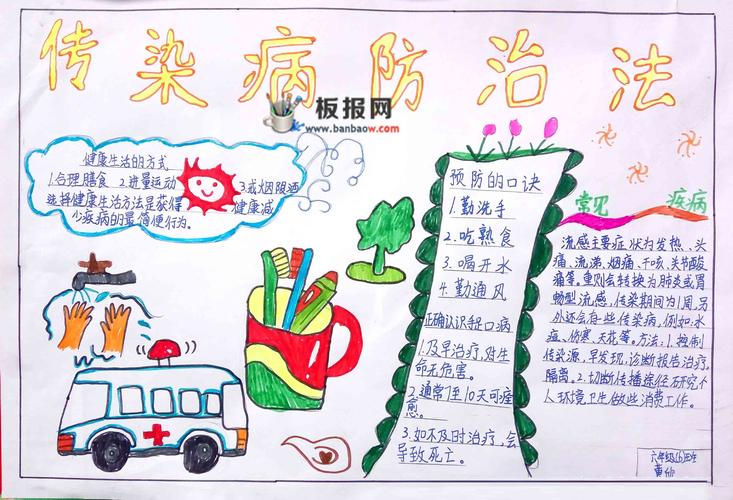 传染病防治法
板报网
www.banbaow.com
健康生活的方式
1.合理膳食 2.进量运动 3.戒烟限酒
选择健康生活方法是获得健康减
少疾病的最简便行为。
预防的口诀
1.勤洗手
2.吃熟食
3.喝开水
4.勤通风
正确认识轻口病
1.及早治疗,对生
命无危害。
2.通常7至10天可痊
愈。
3.如不及时治疗,会
导致死亡。
常见 疾病
流感主要症状为发热、头
痛、流涕、烟痛、干咳、关节酸
痛等。重则会转换为肺炎或胃
肠型流感,传染期间为1周,另
外还会有些传染病,例如:水
痘、伤寒、天花等。方法:1.控制
传染源,早发现,诊断报告治疗,
隔离。2.切断传播途径研究个
人环境卫生做些消费工作。
六年级(6)班
黄